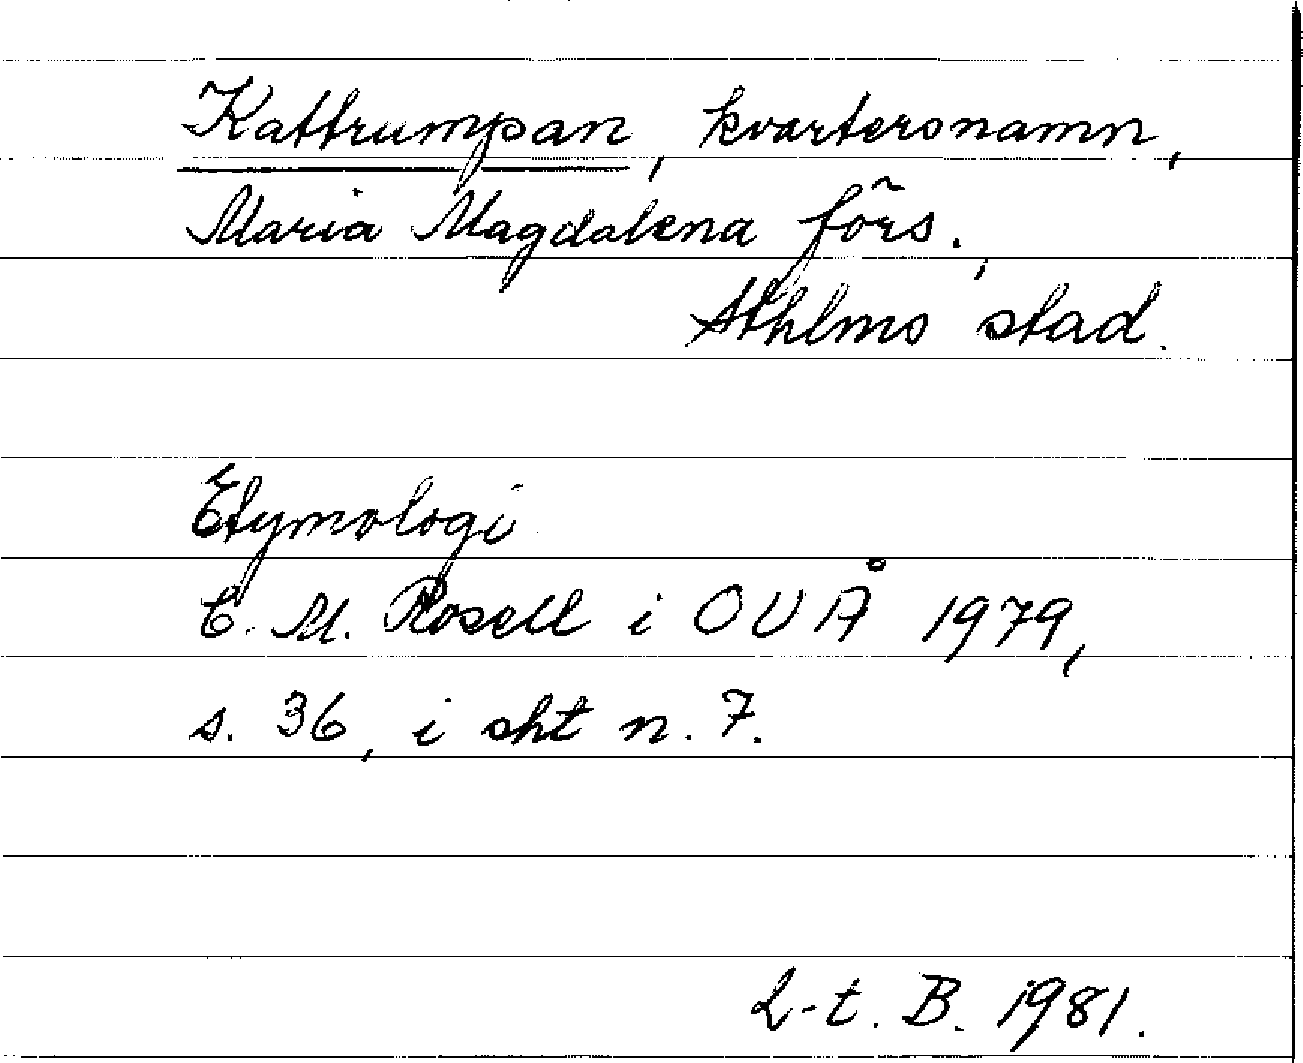 Kattrumpan, kvartersnamn,
Maria Magdalena förs.,
Sthlms stad.
Etymologi
C. M. Rosell i OUÅ 1979,
s. 36, i sht n. 7.
L-t. B. 1981.